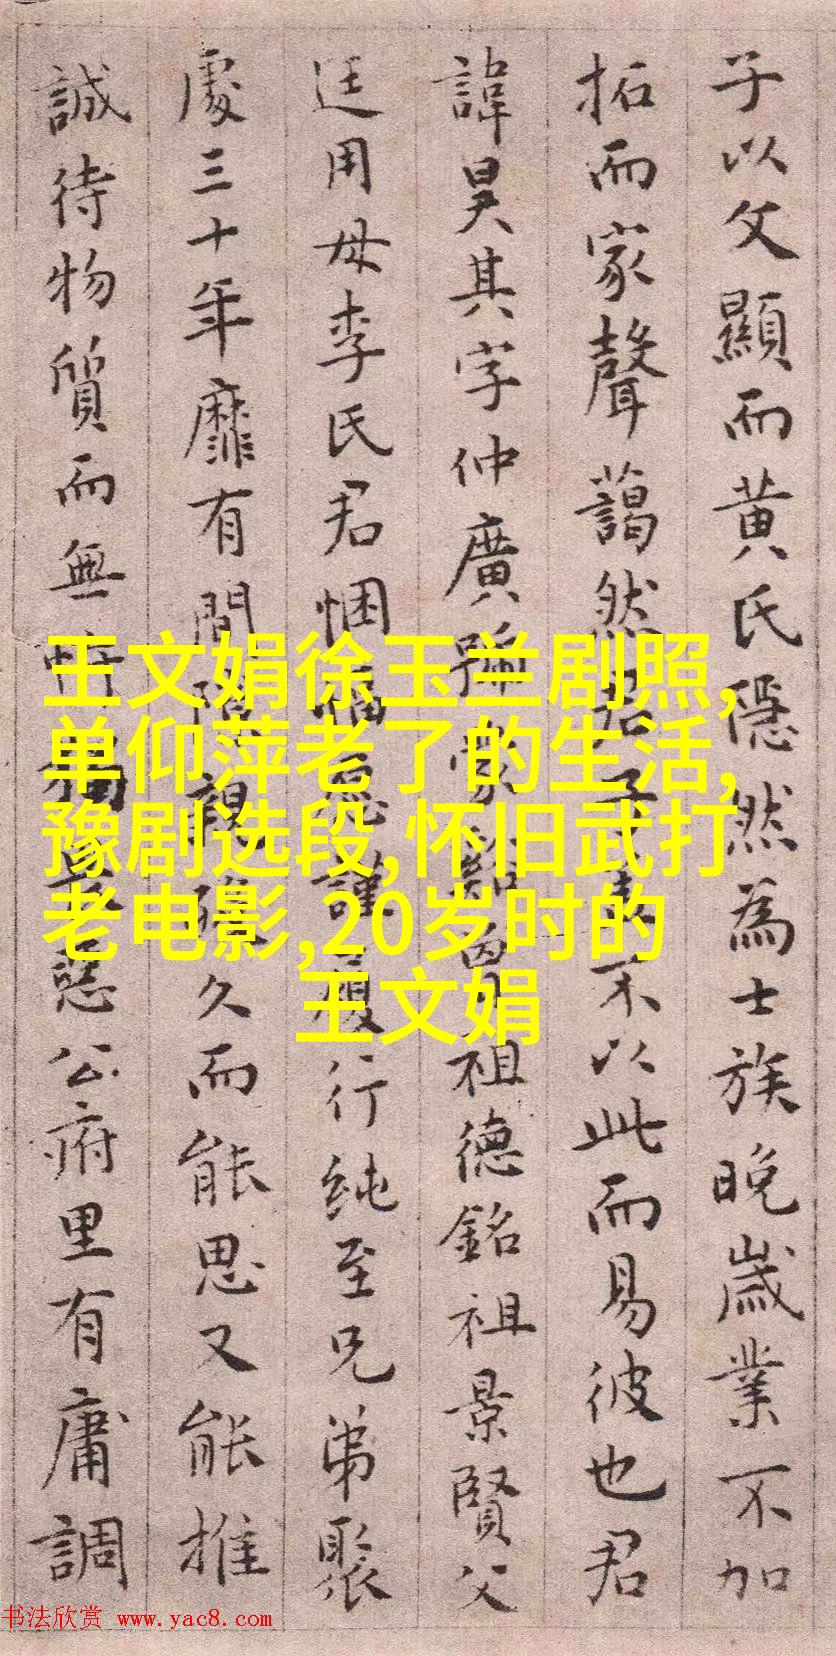 子以父顯而黄氏隱然為士族晚歲業不加
拓而家聲藹然君子不以此而易彼也君
諱昊其字仲廣號蒙祖德銘祖景賢父
廷用母李氏君悃愊謹履行純至兄弟聚
處三十年靡有間親久而能思又能推
誠待物質而無惡公府里有庸調
王文娟徐玉兰剧照,
单仰萍老了的生活,
豫剧选段,怀旧武打
老电影,20岁时的
王文娟
书法欣赏 www.yac8.com